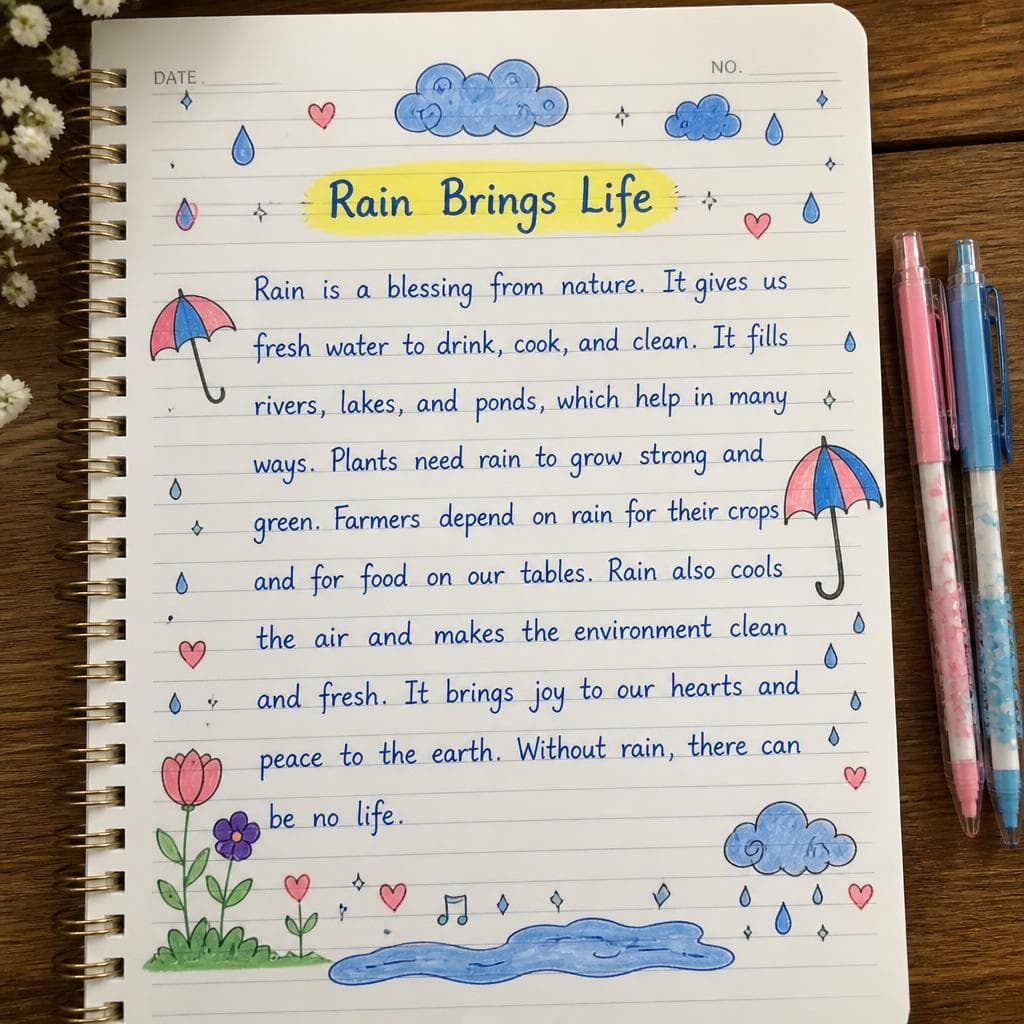 DATE.
NO.
Rain Brings Life
Rain is a blessing from nature. It gives us
fresh water to drink, cook, and clean. It fills
rivers, lakes, and ponds, which help in many
ways. Plants need rain to grow strong and
green. Farmers depend on rain for their crops
and for food on our tables. Rain also cools
the air and makes the environment clean
and fresh. It brings joy to our hearts and
peace to the earth. Without rain, there can
be no life.